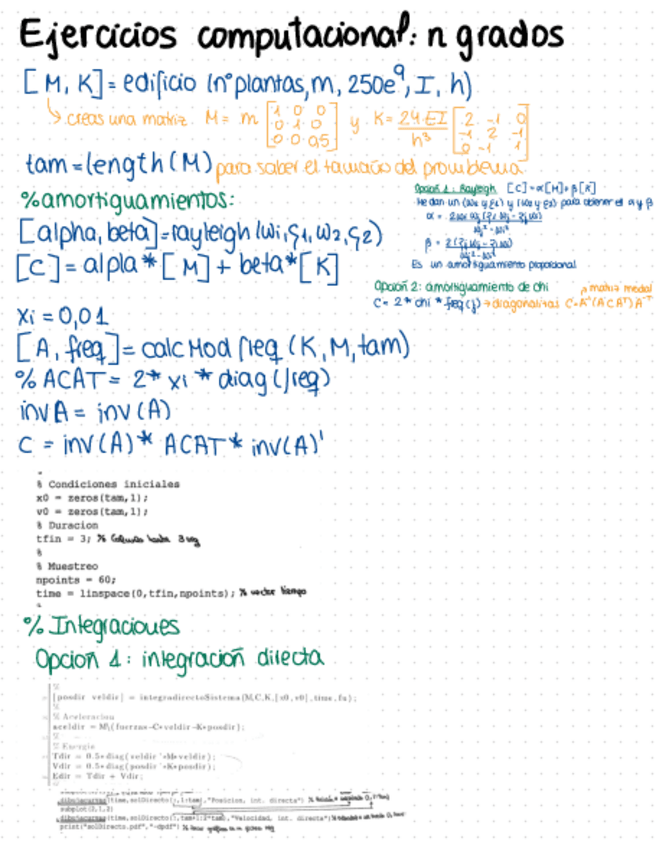 Ejercicios computacional: n grados
[M, K] = edificio (nº plantas, m, 250e⁹, I, h)
↳ creas una matriz. M = m [1 0 0 0 1 0 0 0 0,5] y K = 24EI/h³ [2 -1 0 -1 2 -1 0 -1 1]
tam = length(M) para saber el tamaño del problema
%amortiguamientos:
[alpha, beta] = rayleigh (w1, ς1, w2, ς2)
[C] = alpla * [M] + beta * [K]
Opcion 1: Rayleigh [C] = α[M] + β[K]
Me dan un (w1 y ς1) y (w2 y ς2) para obtener el α y β
Es un amortiguamiento proporcional
Opcion 2: amortiguamiento de chi → matriz modal
C = 2 * chi * freq(j) → diagonalizas C = A⁻¹(ACAT)A⁻ᵀ
Xi = 0,01
[A, freq] = calcModfreq (K, M, tam)
% ACAT = 2* xi * diag(freq)
invA = inv (A)
C = inv(A) * ACAT * inv(A)'
% Condiciones iniciales
x0 = zeros(tam,1);
v0 = zeros(tam,1);
% Duracion
tfin = 3; % Calculas hasta 3 seg
%
% Muestreo
npoints = 60;
time = linspace(0,tfin,npoints); % vector tiempo
% Integraciones
Opcion 1: integración directa
%
[posdir veldir] = integradirectoSistema(M,C,K,[x0,v0],time,fu);
%
% Aceleracion
aceldir = M\(fuerzas-C*veldir-K*posdir);
%
% Energia
Tdir = 0.5*diag(veldir'*M*veldir);
Vdir = 0.5*diag(posdir'*K*posdir);
Edir = Tdir + Vdir;
dibujacurvas(time,solDirecto(:,1:tam),"Posicion, int. directa")
subplot(2,1,2)
dibujacurvas(time,solDirecto(:,tam+1:2*tam),"Velocidad, int. directa")
print("solDirecto.pdf","-dpdf")